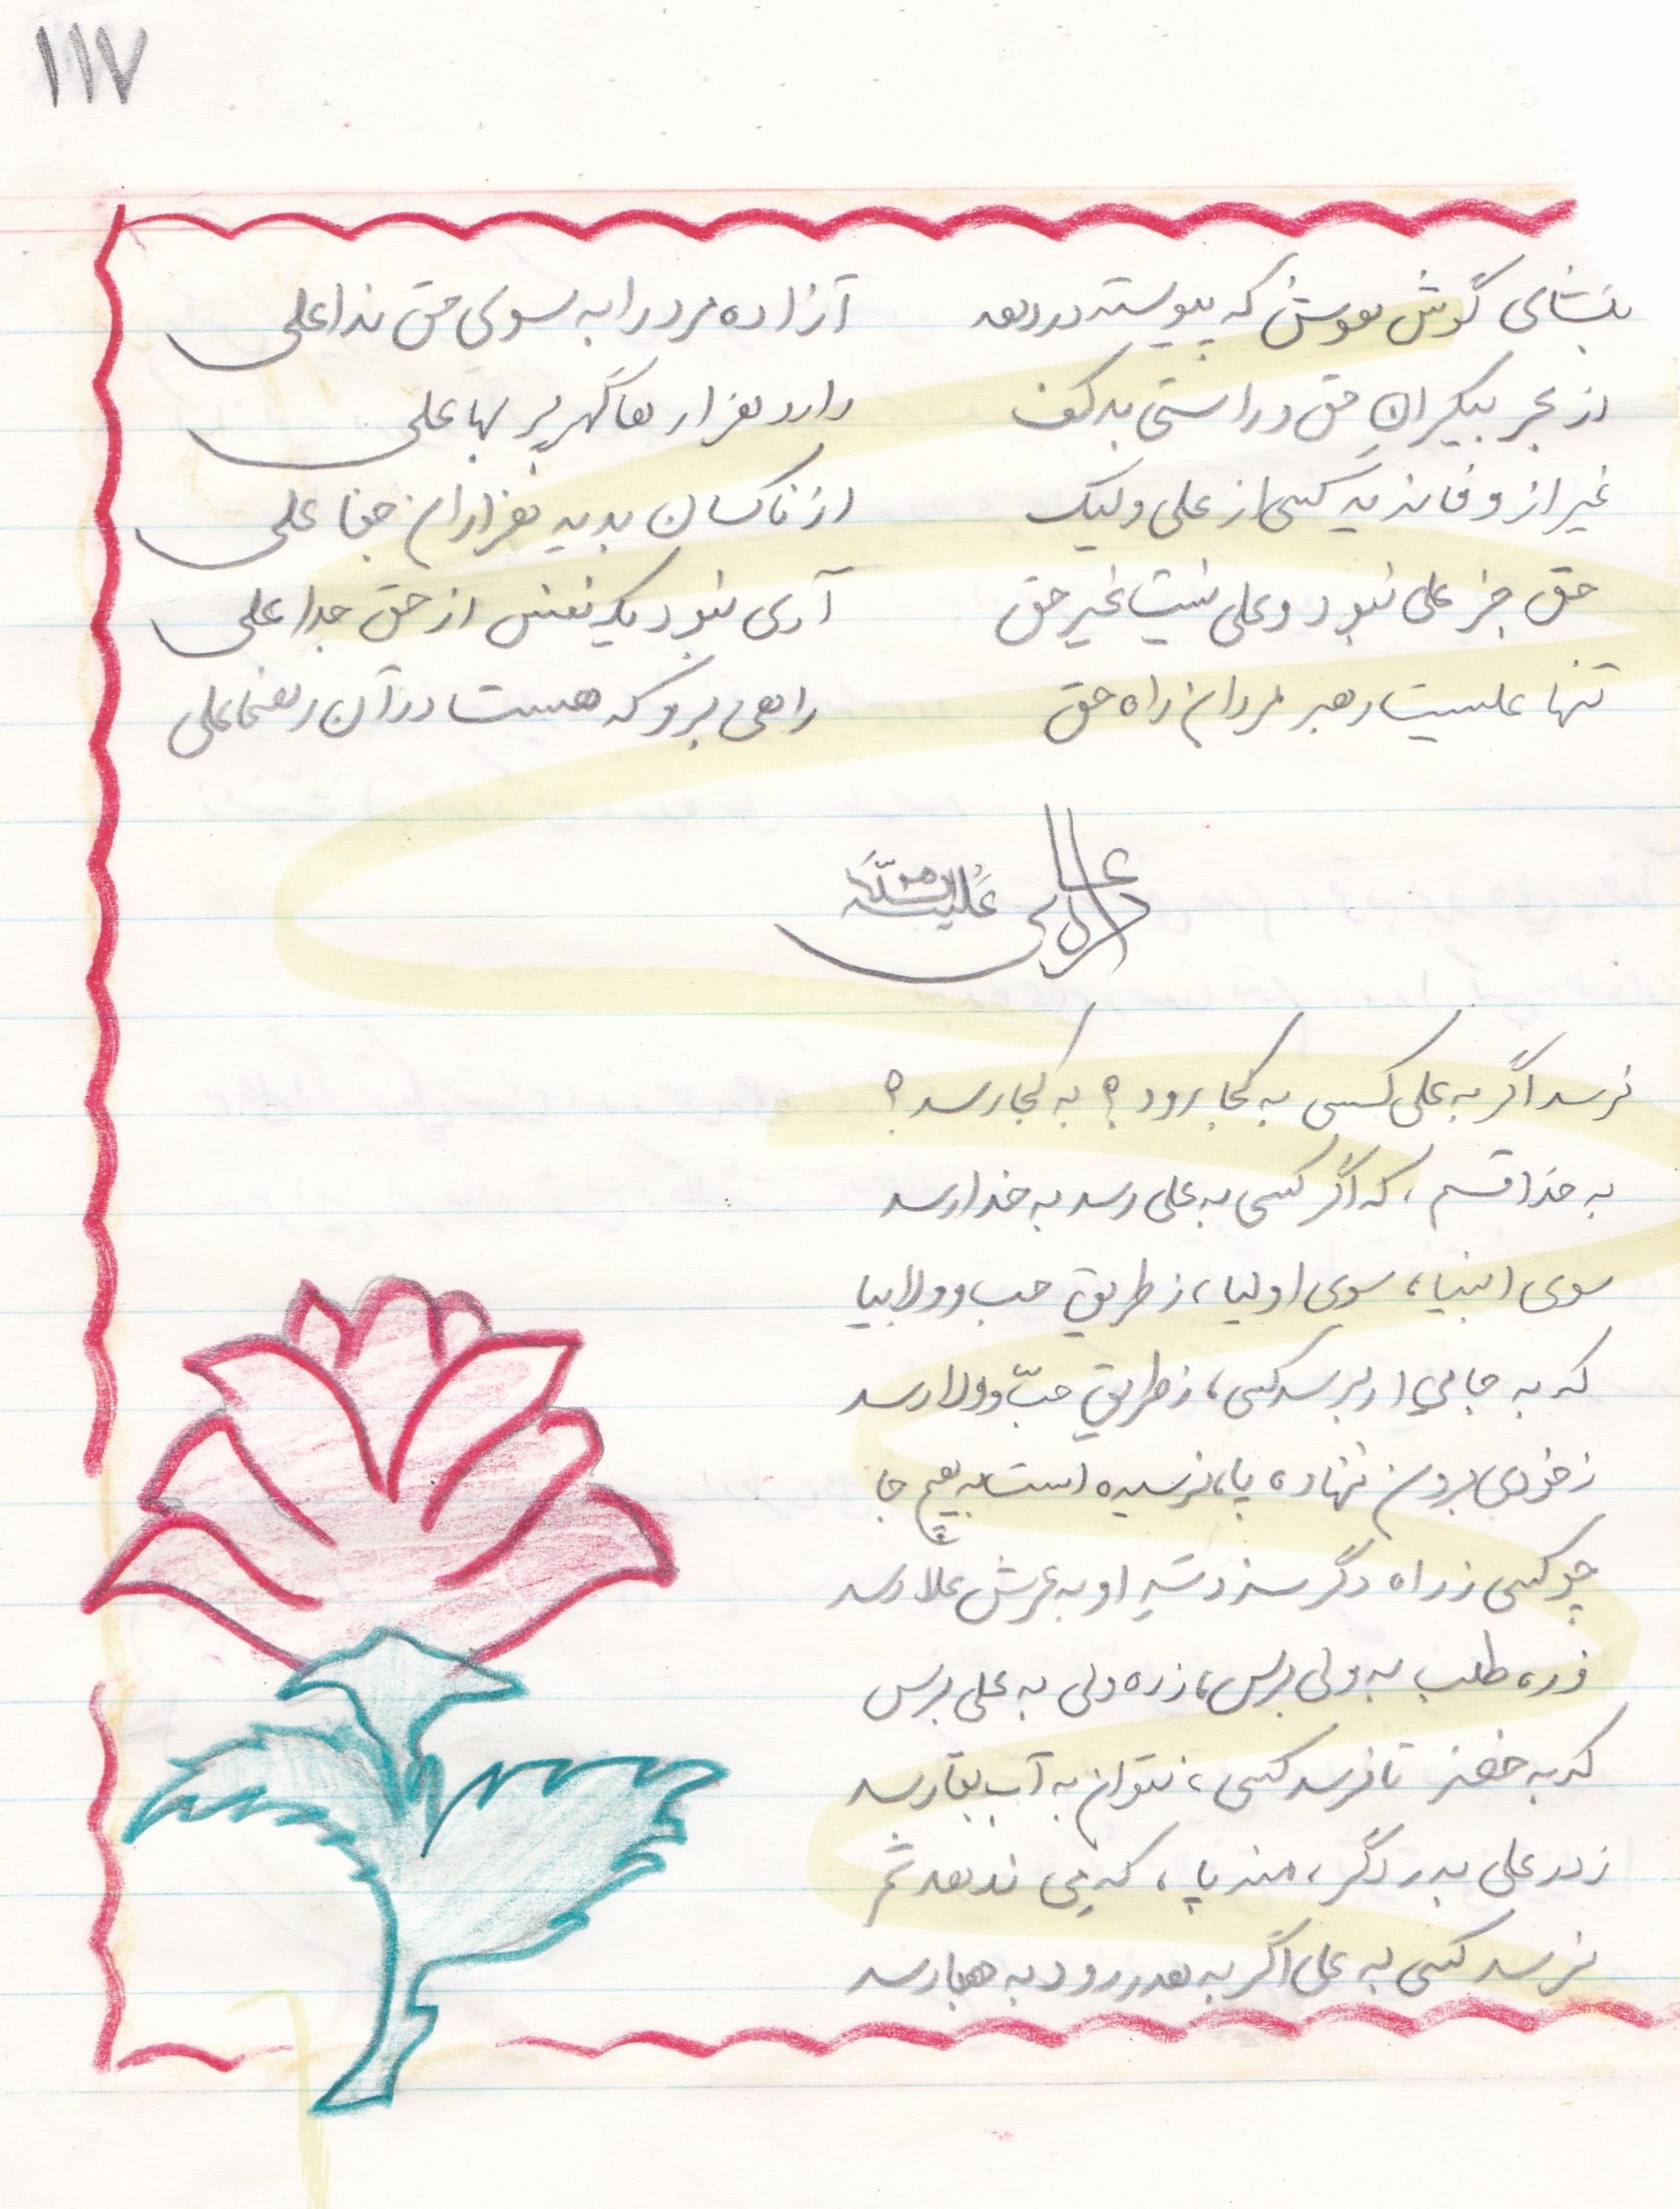 ۱۱۷
بگشای گوش هوش که پیوسته در دهد آزاده مرد را به سوی حق ندا علی
از بحر بیکرانِ حق و راستی به کف دارد هزارها گهر پر بها علی
غیر از وفا ندید کسی از علی ولیک از ناکسان بدید هزاران جفا علی
حق جز علی نبود و علی نیست غیر حق آری نبود یک نفس از حق جدا علی
تنها علیست رهبر مردان راه حق راهی برو که هست در آن رهنما علی
علی
نرسد اگر به علی کسی به کجا رود؟ به کجا رسد؟
به خدا قسم، که اگر کسی به علی رسد به خدا رسد
سوی انبیا، سوی اولیا، ز طریق حب و ولا بیا
که به جایی ار برسد کسی، ز طریق حبّ و ولا رسد
ز خودی برون ننهاده پا، نرسیده است به هیچ جا
چو کسی ز راه دگر سزد او به عرش علا رسد
ز ره طلب به ولی برس، ز ره ولی به علی برس
که به خضر تا نرسد کسی، نتوان به آب بقا رسد
ز در علی به در دگر، منه پا، که می ندهد ثمر
نرسد کسی به علی اگر به هدر رود به هبا رسد